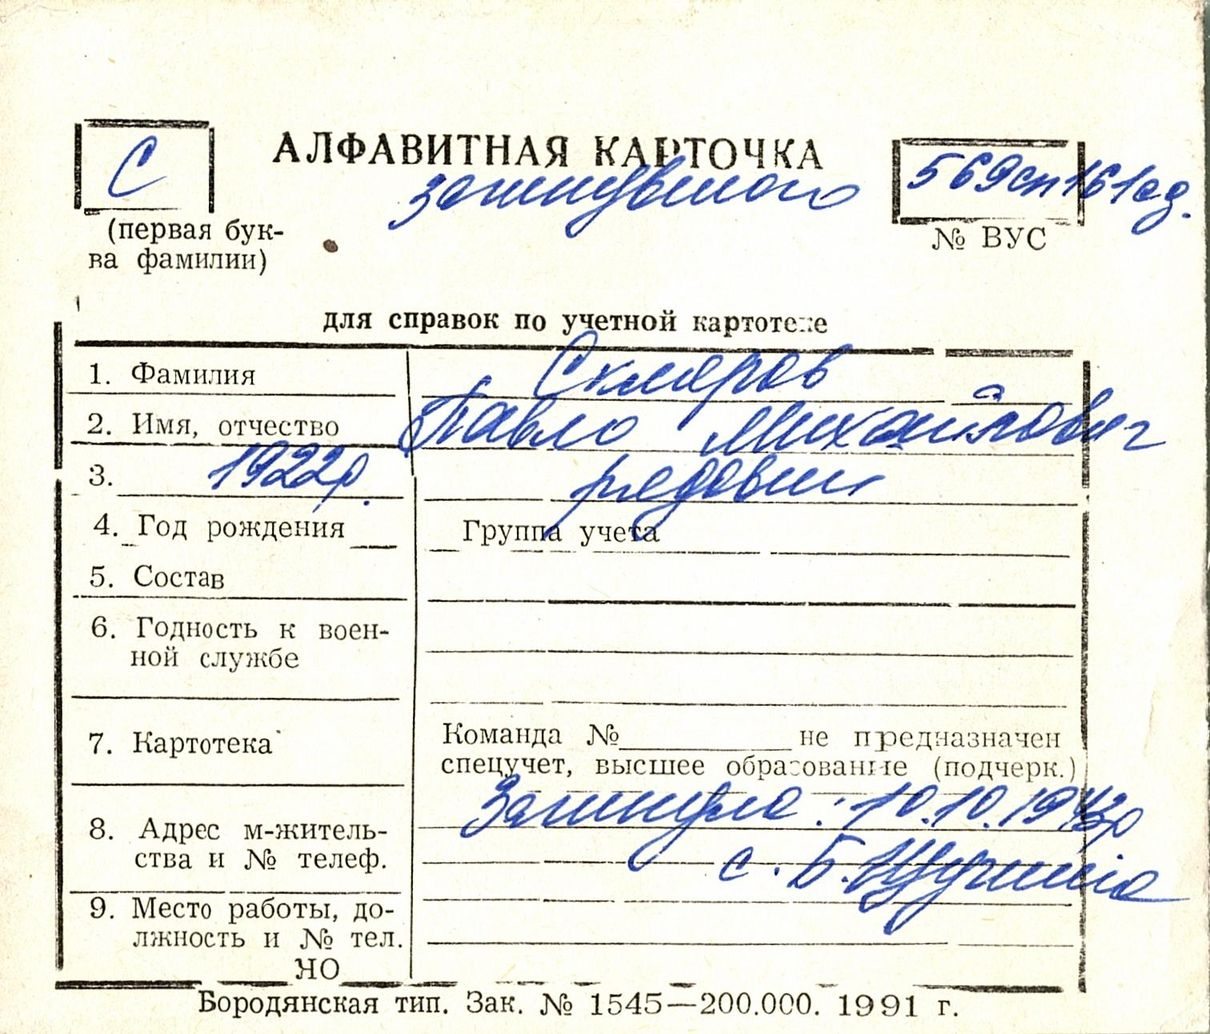 С
АЛФАВИТНАЯ КАРТОЧКА
загинувшого
569сп 161сд.
(первая бук-
ва фамилии)
№ ВУС
для справок по учетной картотеке
1. Фамилия
Скляров
2. Имя, отчество
Павло Михайлович
3. 1922р.
рядовий
4. Год рождения
Группа учета
5. Состав
6. Годность к воен-
ной службе
7. Картотека
Команда №__________ не предназначен
спецучет, высшее образование (подчерк.)
Загинув: 10.10.1943р
8. Адрес м-житель-
ства и № телеф.
с. Б.
9. Место работы, до-
лжность и № тел.
ЯО
Бородянская тип. Зак. № 1545—200.000. 1991 г.